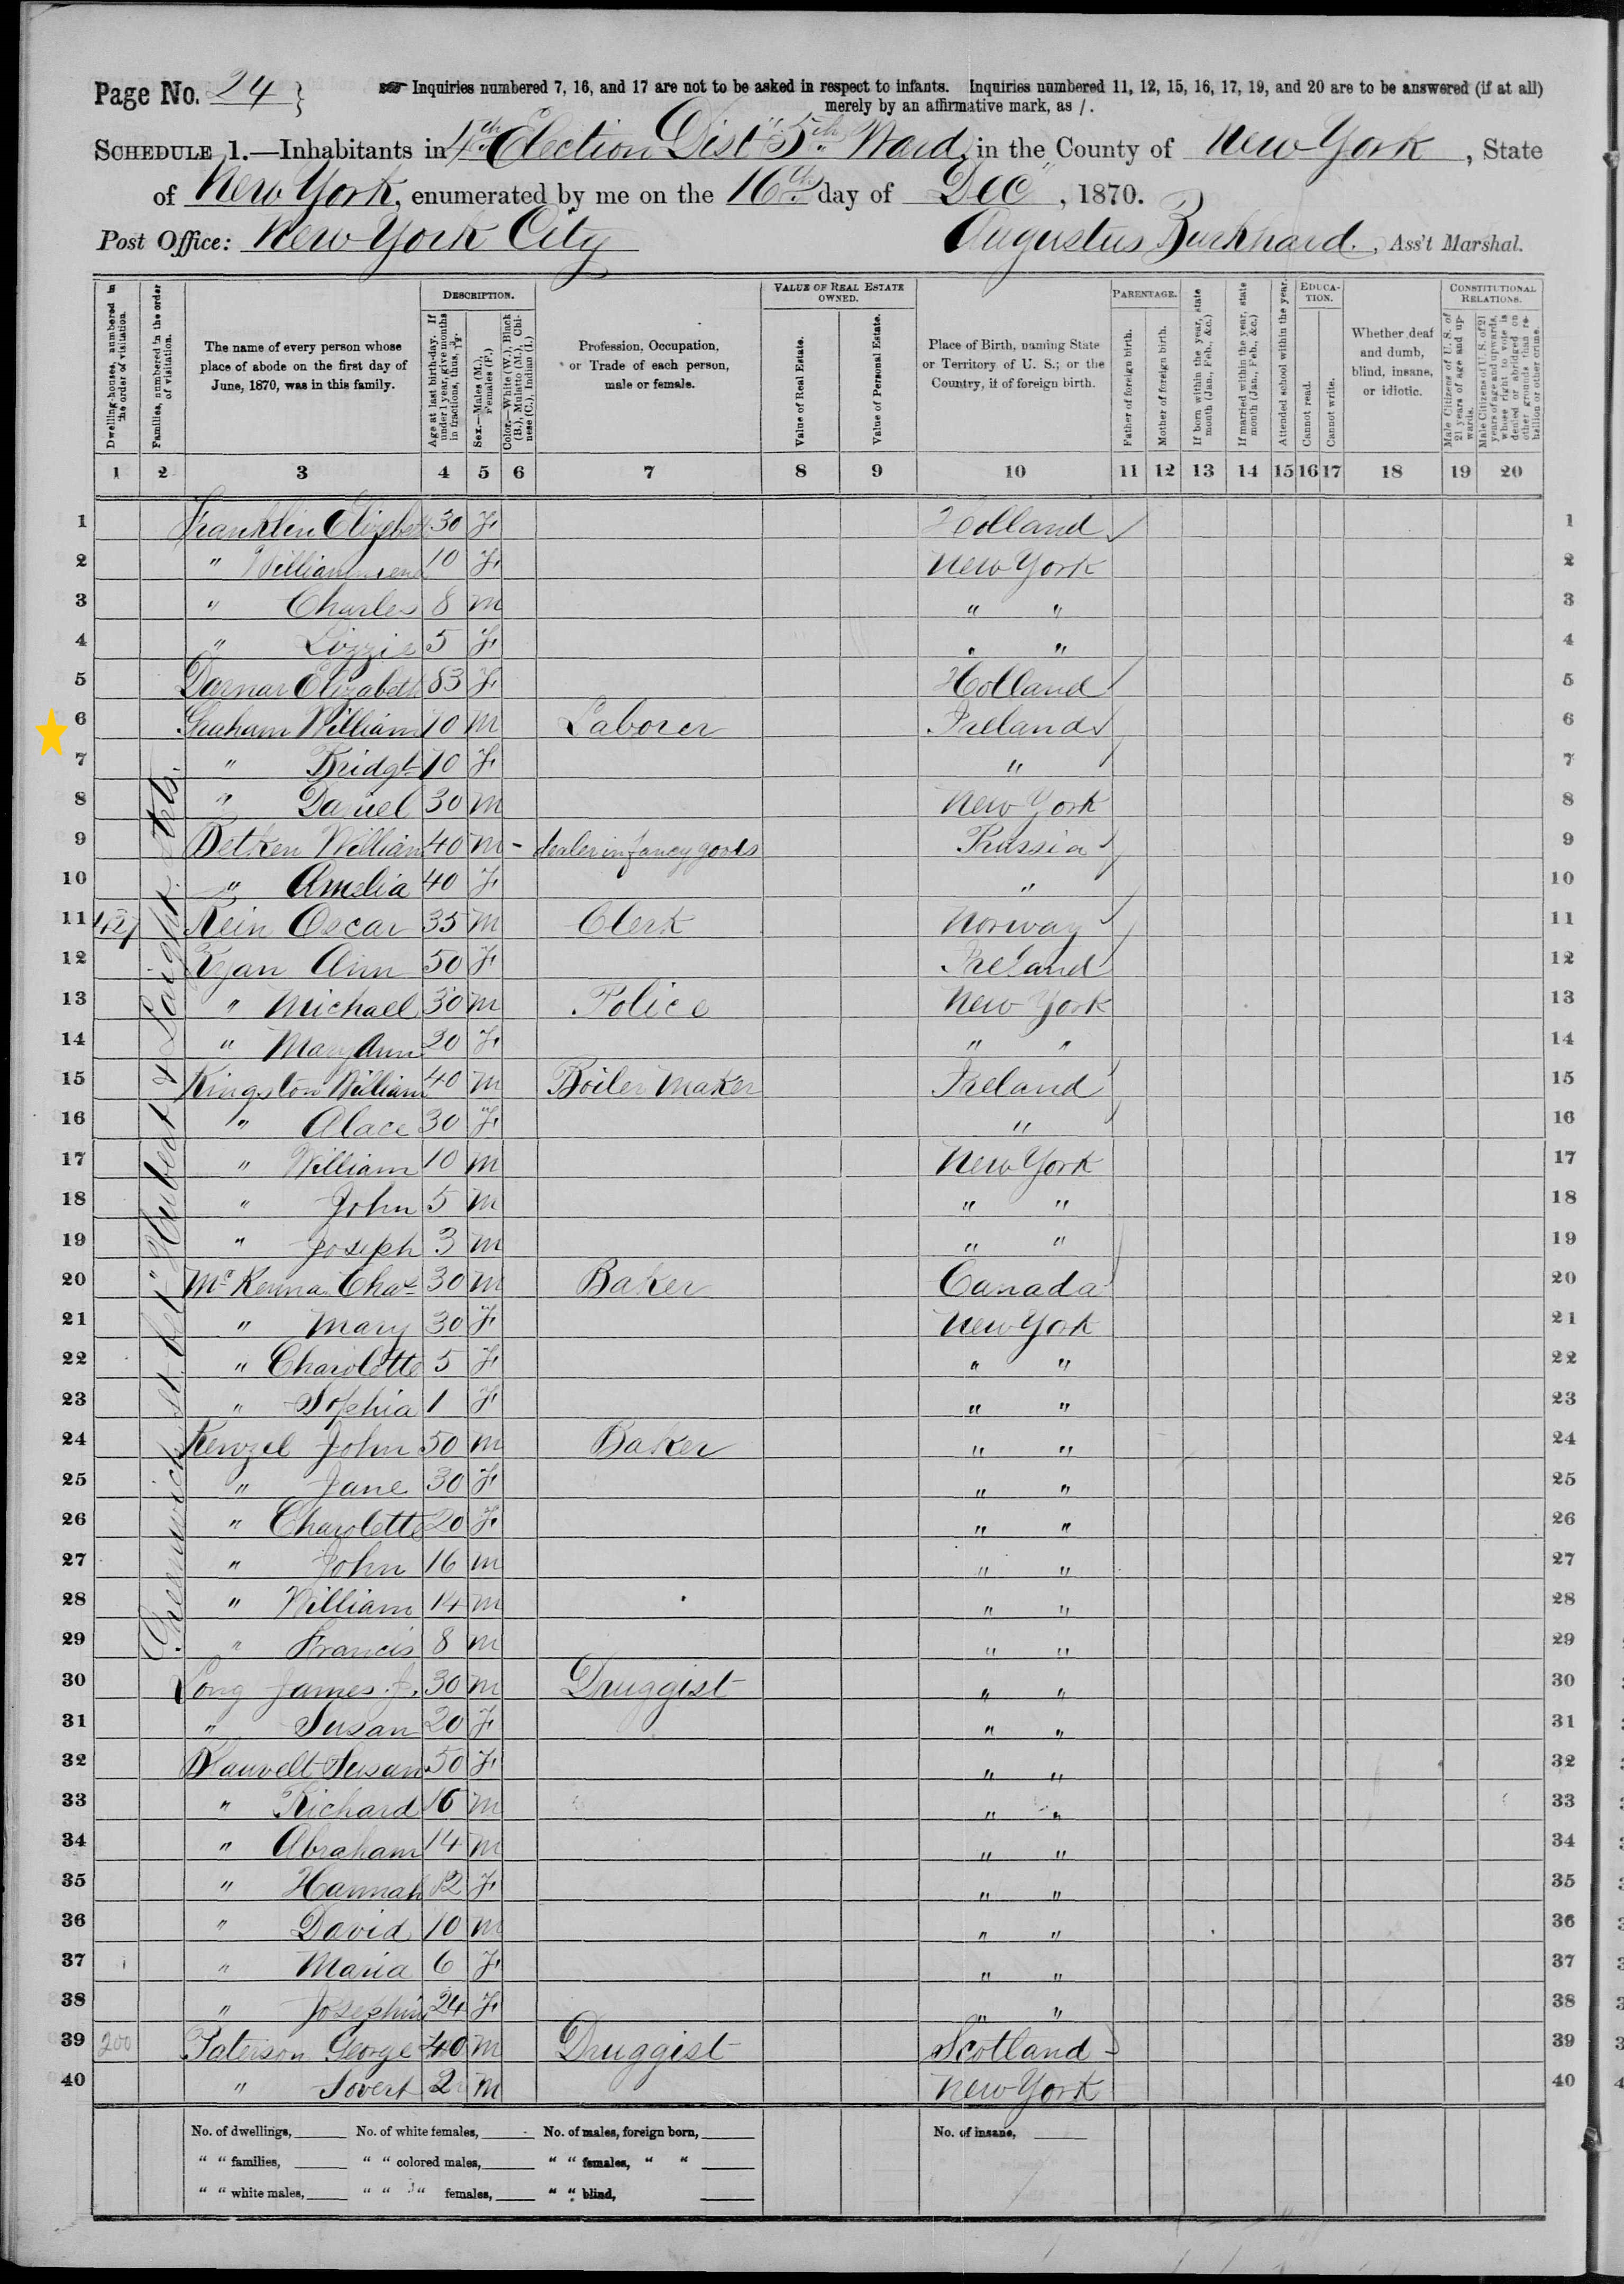 Page No. 24 }
Inquiries numbered 7, 16, and 17 are not to be asked in respect to infants. Inquiries numbered 11, 12, 15, 16, 17, 19, and 20 are to be answered (if at all)
merely by an affirmative mark, as /.
SCHEDULE 1.—Inhabitants in 4th Election Dist 5th Ward, in the County of New York, State
of New York, enumerated by me on the 16th day of Dec, 1870.
Post Office: New York City Augustus Burkhard, Ass't Marshal.
Dwelling-houses, numbered in the order of visitation.
Families, numbered in the order of visitation.
The name of every person whose place of abode on the first day of June, 1870, was in this family.
DESCRIPTION.
Age at last birth-day. If under 1 year, give months in fractions, thus, 3/12.
Sex.—Males (M.), Females (F.)
Color.—White (W.), Black (B.), Mulatto (M.), Chinese (C.), Indian (I.)
Profession, Occupation, or Trade of each person, male or female.
VALUE OF REAL ESTATE OWNED.
Value of Real Estate.
Value of Personal Estate.
Place of Birth, naming State or Territory of U. S.; or the Country, if of foreign birth.
PARENTAGE.
Father of foreign birth.
Mother of foreign birth.
If born within the year, state month (Jan., Feb., &c.)
If married within the year, state month (Jan., Feb., &c.)
Attended school within the year.
EDUCATION.
Cannot read.
Cannot write.
Whether deaf and dumb, blind, insane, or idiotic.
CONSTITUTIONAL RELATIONS.
Male Citizens of U. S. of 21 years of age and upwards.
Male Citizens of U. S. of 21 years of age and upwards, whose right to vote is denied or abridged on other grounds than rebellion or other crime.
1 2 3 4 5 6 7 8 9 10 11 12 13 14 15 16 17 18 19 20
Greenwich st bet Hubert & Laight sts.
1 Franklin Elizabeth 30 F Holland 1
2 " 10 F New York 2
3 " Charles 8 M " " 3
4 " Lizzie 5 F " " 4
5 Darnar Elizabeth 83 F Holland 5
6 Graham William 70 M Laborer Ireland 6
7 " Bridgt 70 F " 7
8 " Daniel 30 M New York 8
9 Betken William 40 M - dealer in fancy goods Prussia 9
10 " Amelia 40 F " 10
11 Rein Oscar 35 M Clerk Norway 11
12 Ryan Ann 50 F Ireland 12
13 " Michael 30 M Police New York 13
14 " Mary Ann 20 F " " 14
15 Kingston William 40 M Boiler Maker Ireland 15
16 " Alace 30 F " 16
17 " William 10 M New York 17
18 " John 5 M " " 18
19 " Joseph 3 M " " 19
20 McKenna Chas 30 M Baker Canada 20
21 " Mary 30 F New York 21
22 " Charolette 5 F " " 22
23 " Sophia 1 F " " 23
24 Kenzel John 50 M Baker " " 24
25 " Jane 30 F " " 25
26 " Charolette 20 F " " 26
27 " John 16 M " " 27
28 " William 14 M " " 28
29 " Francis 8 M " " 29
30 Long James J. 30 M Druggist " " 30
31 " Susan 20 F " " 31
32 Blauvelt Susan 50 F " " 32
33 " Richard 16 M " " 33
34 " Abraham 14 M " " 34
35 " Hannah 12 F " " 35
36 " David 10 M " " 36
37 " Maria 6 F " " 37
38 " Josephine 24 F " " 38
39 200 Paterson George 40 M Druggist Scotland 39
40 " 2 M New York 40
No. of dwellings, No. of white females, No. of males, foreign born, No. of insane,
" " families, " " colored males, " " females, " "
" " white males, " " " females, " " blind,